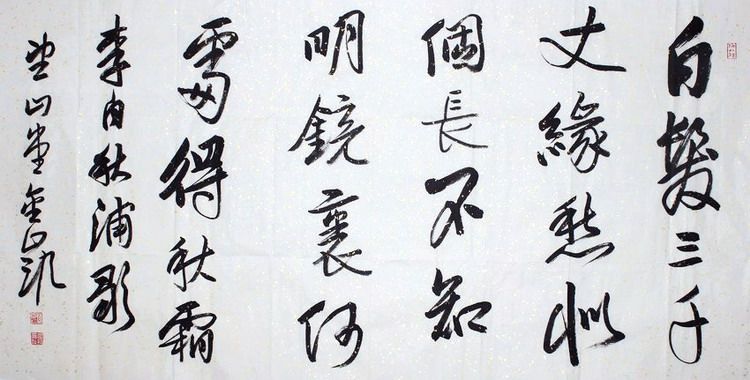 白髮三千
丈緣愁似
個長不知
明鏡裏何
處得秋霜
李白秋浦歌
山堂